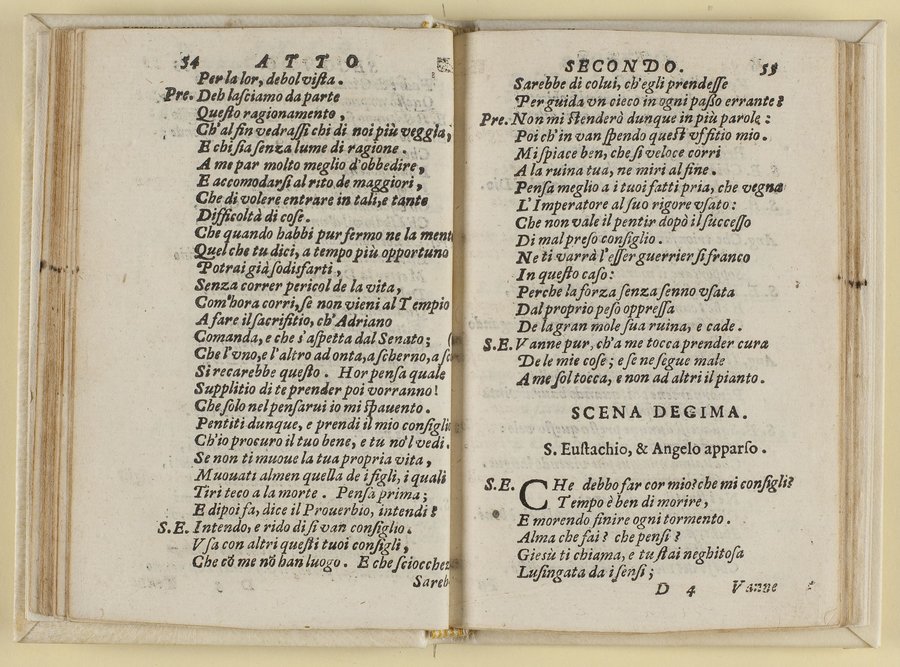 54 ATTO
Per la lor, debol viſta.
Pre. Deh laſciamo da parte
Queſto ragionamento,
Ch'al fin vedraſſi chi di noi più veggia,
E chi ſia ſenza lume di ragione.
A me par molto meglio d'obbedire,
E accomodarſi al rito de maggiori,
Che di volere entrare in tali, e tante
Difficoltà di coſe.
Che quando habbi pur fermo ne la ment
Quel che tu dici, a tempo più opportuno
Potrai già ſodisfarti,
Senza correr pericol de la vita,
Com'hora corri, ſe non vieni al Tempio
A fare il ſacrifitio, ch'Adriano
Comanda, e che s'aſpetta dal Senato;
Che l'vno, e l'altro ad onta, a ſcherno, a ſc
Si recarebbe queſto. Hor penſa quale
Supplitio di te prender poi vorranno!
Che ſolo nel penſarui io mi ſpauento.
Pentiti dunque, e prendi il mio conſigli
Ch'io procuro il tuo bene, e tu no'l vedi.
Se non ti muoue la tua propria vita,
Muouati almen quella de i figli, i quali
Tiri teco a la morte. Penſa prima;
E di poi fa, dice il Prouerbio, intendi?
S.E. Intendo, e rido di ſi van conſiglio.
Vſa con altri queſti tuoi conſigli,
Che cõ me nõ han luogo. E che ſciocchez
Sareb
SECONDO. 55
Sarebbe di colui, ch'egli prendeſſe
Per guida vn cieco in ogni paſſo errante?
Pre. Non mi ſtenderò dunque in più parole:
Poi ch'in van ſpendo queſt vffitio mio.
Mi ſpiace ben, che ſi veloce corri
A la ruina tua, ne miri al fine.
Penſa meglio a i tuoi fatti pria, che vegna
L'Imperatore al ſuo rigore vſato:
Che non vale il pentir dopò il ſucceſſo
Di mal preſo conſiglio.
Ne ti varrà l'eſſer guerrier ſi franco
In queſto caſo:
Perche la forza ſenza ſenno vſata
Dal proprio peſo oppreſſa
De la gran mole ſua ruina, e cade.
S.E. Vanne pur, ch'a me tocca prender cura
De le mie coſe; e ſe ne ſegue male
A me ſol tocca, e non ad altri il pianto.
SCENA DECIMA.
S. Euſtachio, & Angelo apparſo.
S.E. CHe debbo far cor mio? che mi conſigli?
Tempo è ben di morire,
E morendo finire ogni tormento.
Alma che fai? che penſi?
Giesù ti chiama, e tu ſtai neghitoſa
Luſingata da i ſenſi;
D 4 Vanne